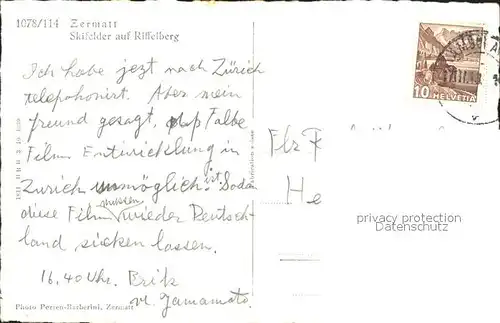 1078/114 Zermatt
Skifelder auf Riffelberg
Ich habe jezt nach Zürich
telephonirt. Aber mein
freund gesagt, dass Falbe
Film Entwicklung in
Zürich unmöglich ist. Sodan
diese Film müssen wieder Deutsch-
land sücken lassen.
16.40 Uhr. Brik
Yamamoto
Photo Perren-Barberini, Zermatt
10 HELVETIA
He
privacy protection
Datenschutz